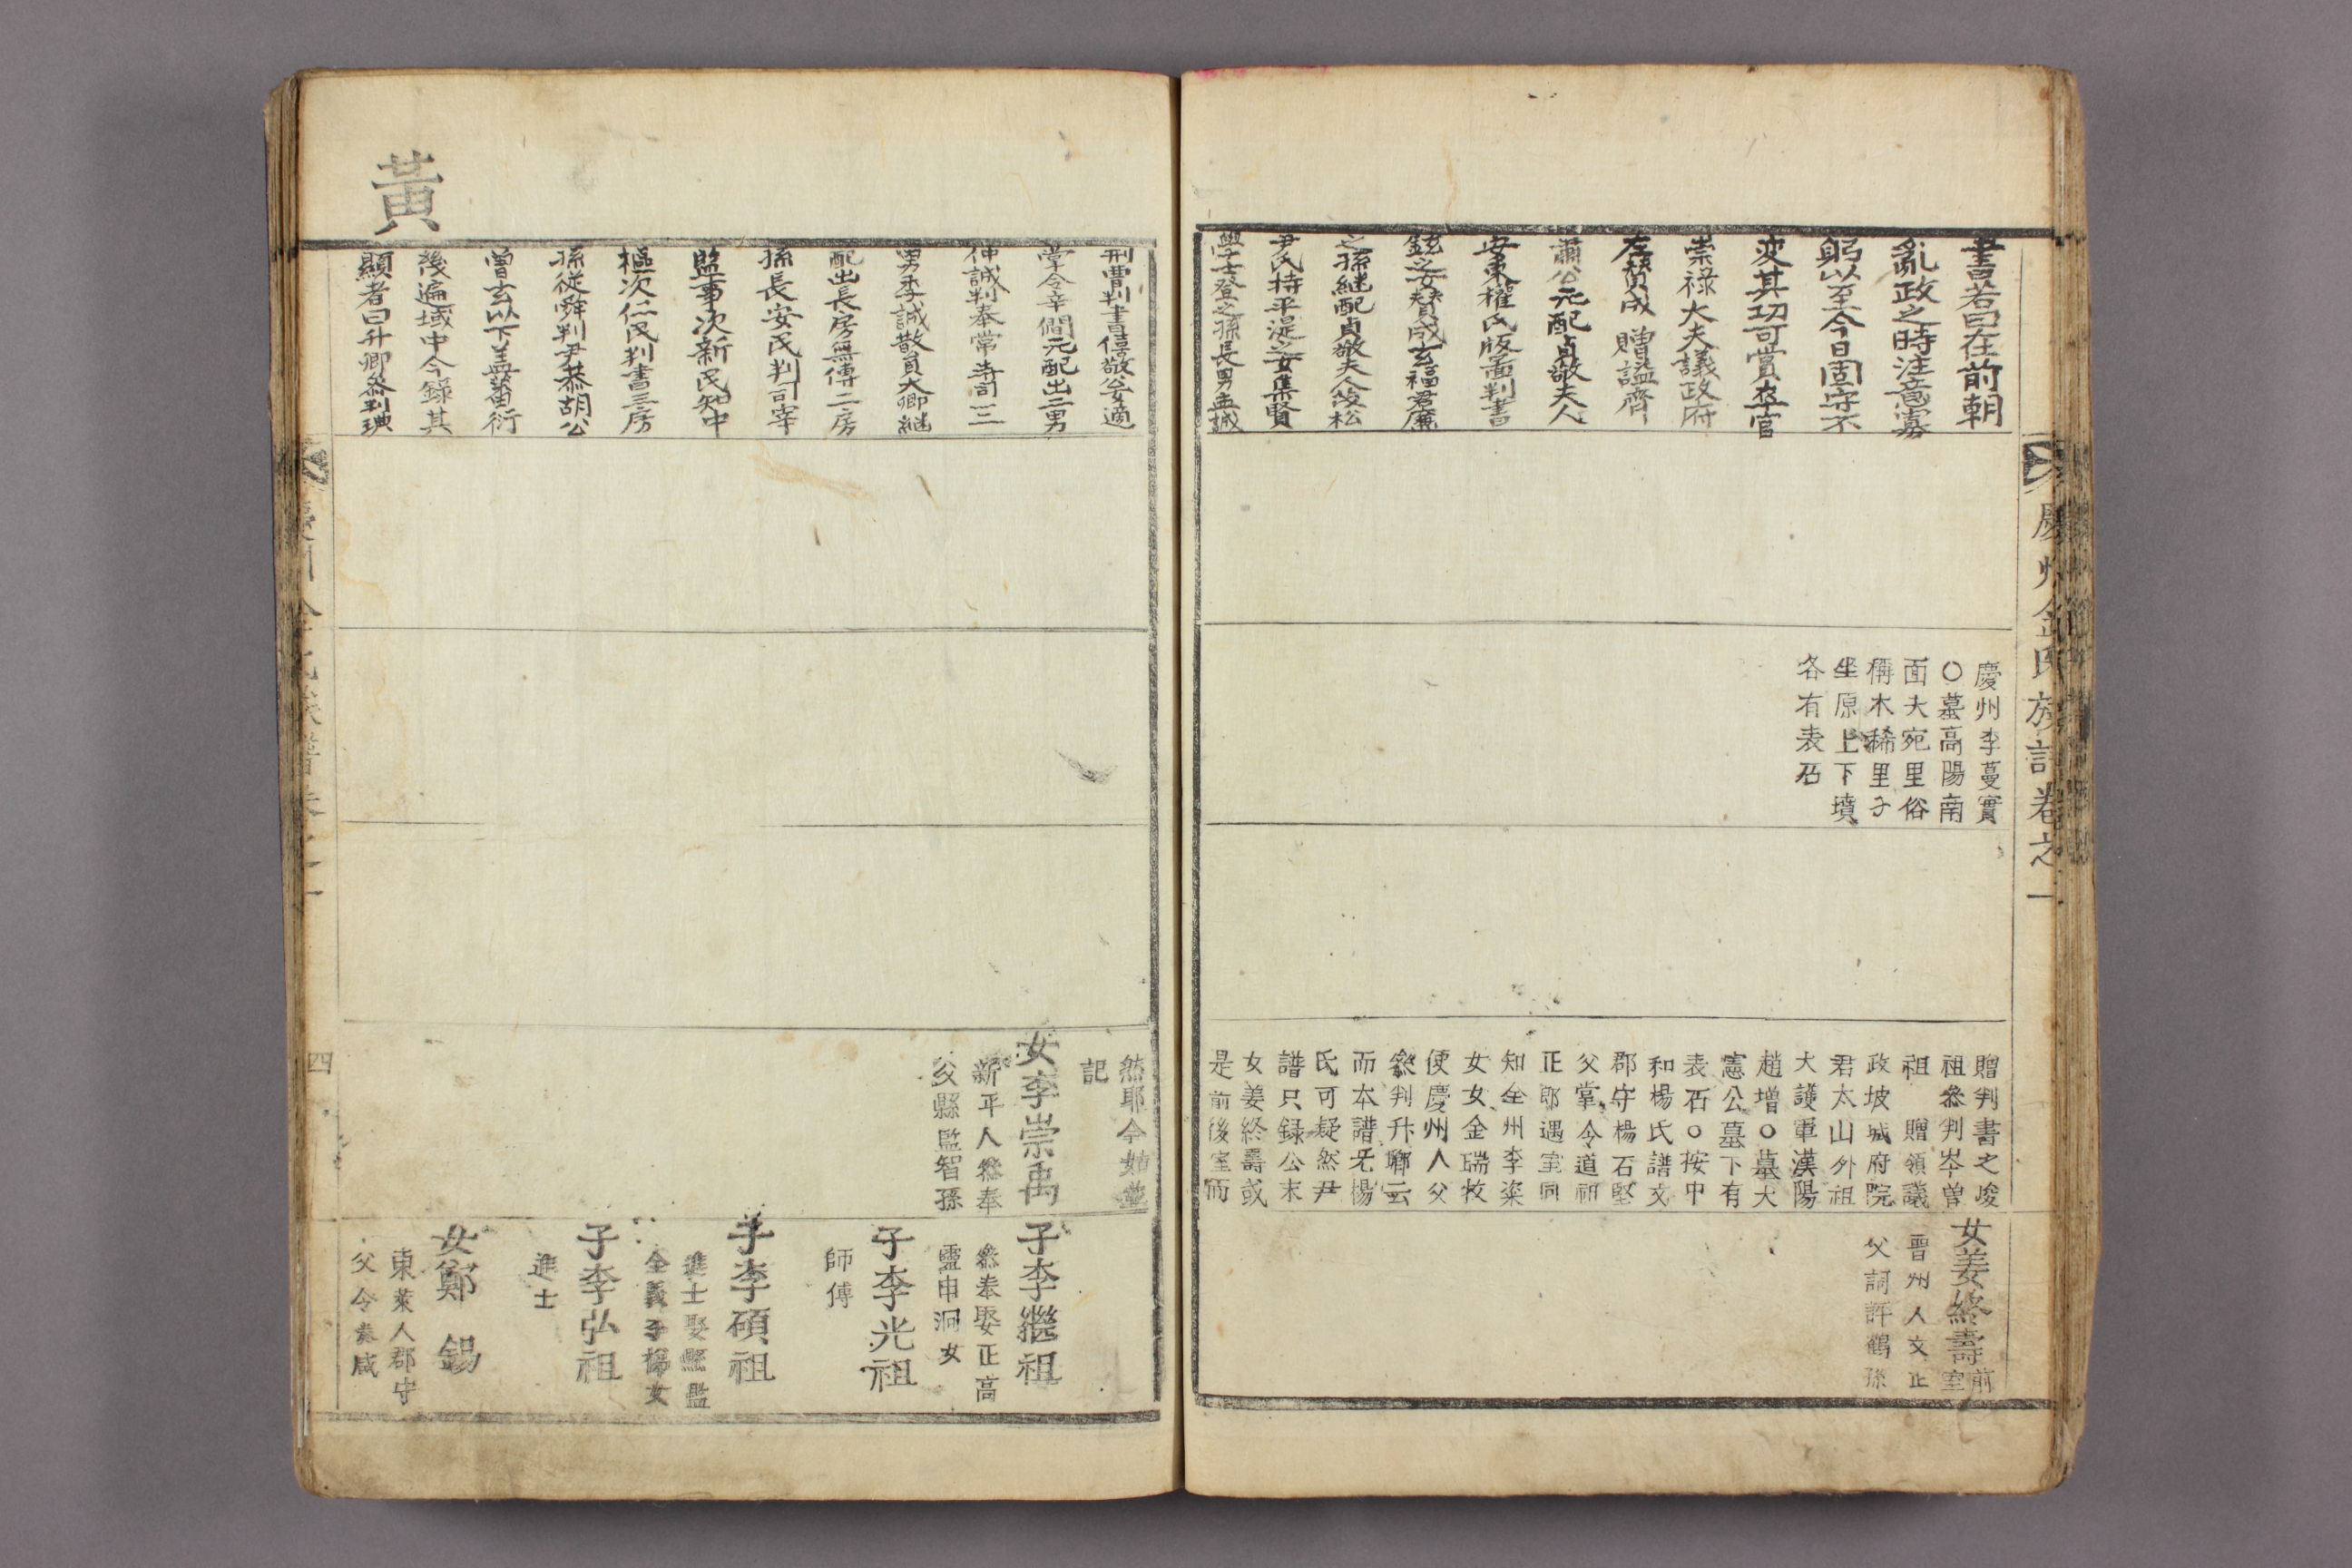 慶州金氏族譜卷之一
書若曰在前朝
亂政之時注意寡
躬以至今日固守不
變其功可賞官
崇祿大夫議政府
左贊成 贈諡齊
肅公元配貞敬夫人
安東權氏版圖判書
鉉之女贊成玄福君廉
之孫繼配貞敬夫人坡松
尹氏持平湜之女集賢
學士登之孫長男孟誠
慶州李蔓實
○墓高陽南
面大宛里俗
稱木稀里子
坐原上下墳
各有表石
贈判書之峻
祖參判岑曽
祖 贈領議
政坡城府院
君太山外祖
大護軍漢陽
趙增○墓大
憲公墓下有
表石○按中
和楊氏譜文
郡守楊石堅
父掌令道祖
正郎遇室同
知全州李楽
女女金瑞牧
使慶州人父
參判升卿云
而本譜无楊
氏可疑然尹
譜只録公末
女姜終壽或
是前後室而
女姜終壽前室
晋州人文正
父詞許鶴孫
黃
刑曹判書僖敬公女適
掌令辛僩元配出二男
仲誠判奉常寺司三
男季誠散員大卿継
配出長房無傳二房
孫長安民判司宰
監事次新民知中
樞次仁民判書三房
孫從舜判尹恭胡公
曽玄以下益蕃衍
後遍域中今錄其
顯者曰升卿參判璵
然耶今始並
記
女李崇禹
新平人參奉
父縣監智孫
子李繼祖
參奉娶正高
靈申泂女
子李光祖
師傅
子李碩祖
進士娶縣監
全義李楊女
子李弘祖
進士
女鄭錫
東萊人郡守
父令素咸
四